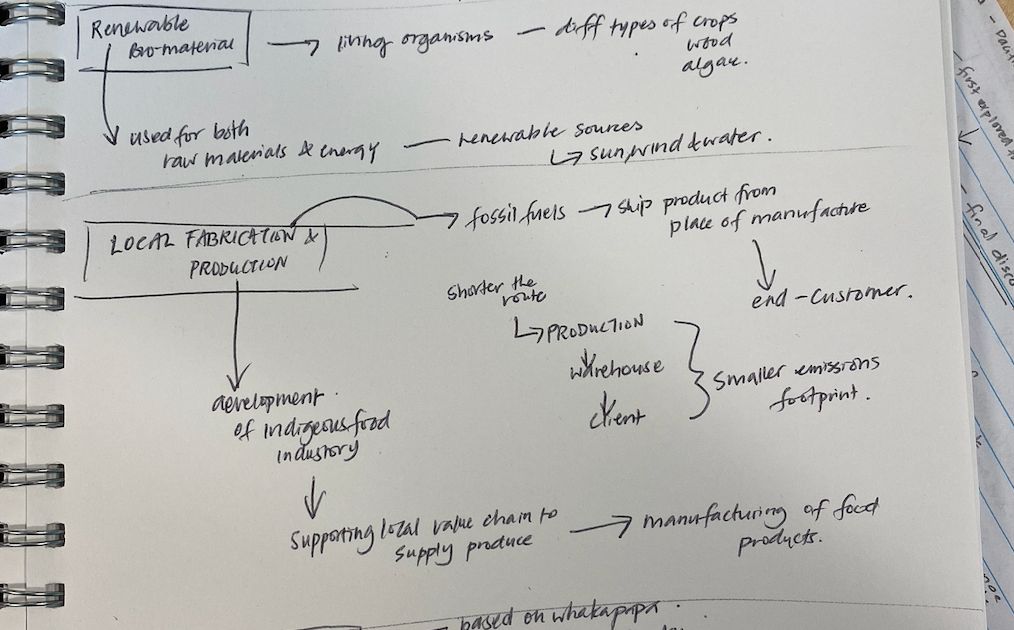 Renewable
Bio-material → living organisms — diff types of crops
wood
algae.
used for both
raw materials & energy — renewable sources
↳ sun, wind & water.
LOCAL FABRICATION &
PRODUCTION
→ fossil fuels → ship product from
place of manufacture
end-customer.
shorter the
route
↳ PRODUCTION
warehouse
client
smaller emissions
footprint.
development
of indigeous food
industory
supporting local value chain to
supply produce → manufacturing of food
products.
based on whakapapa.
first explored
final disco